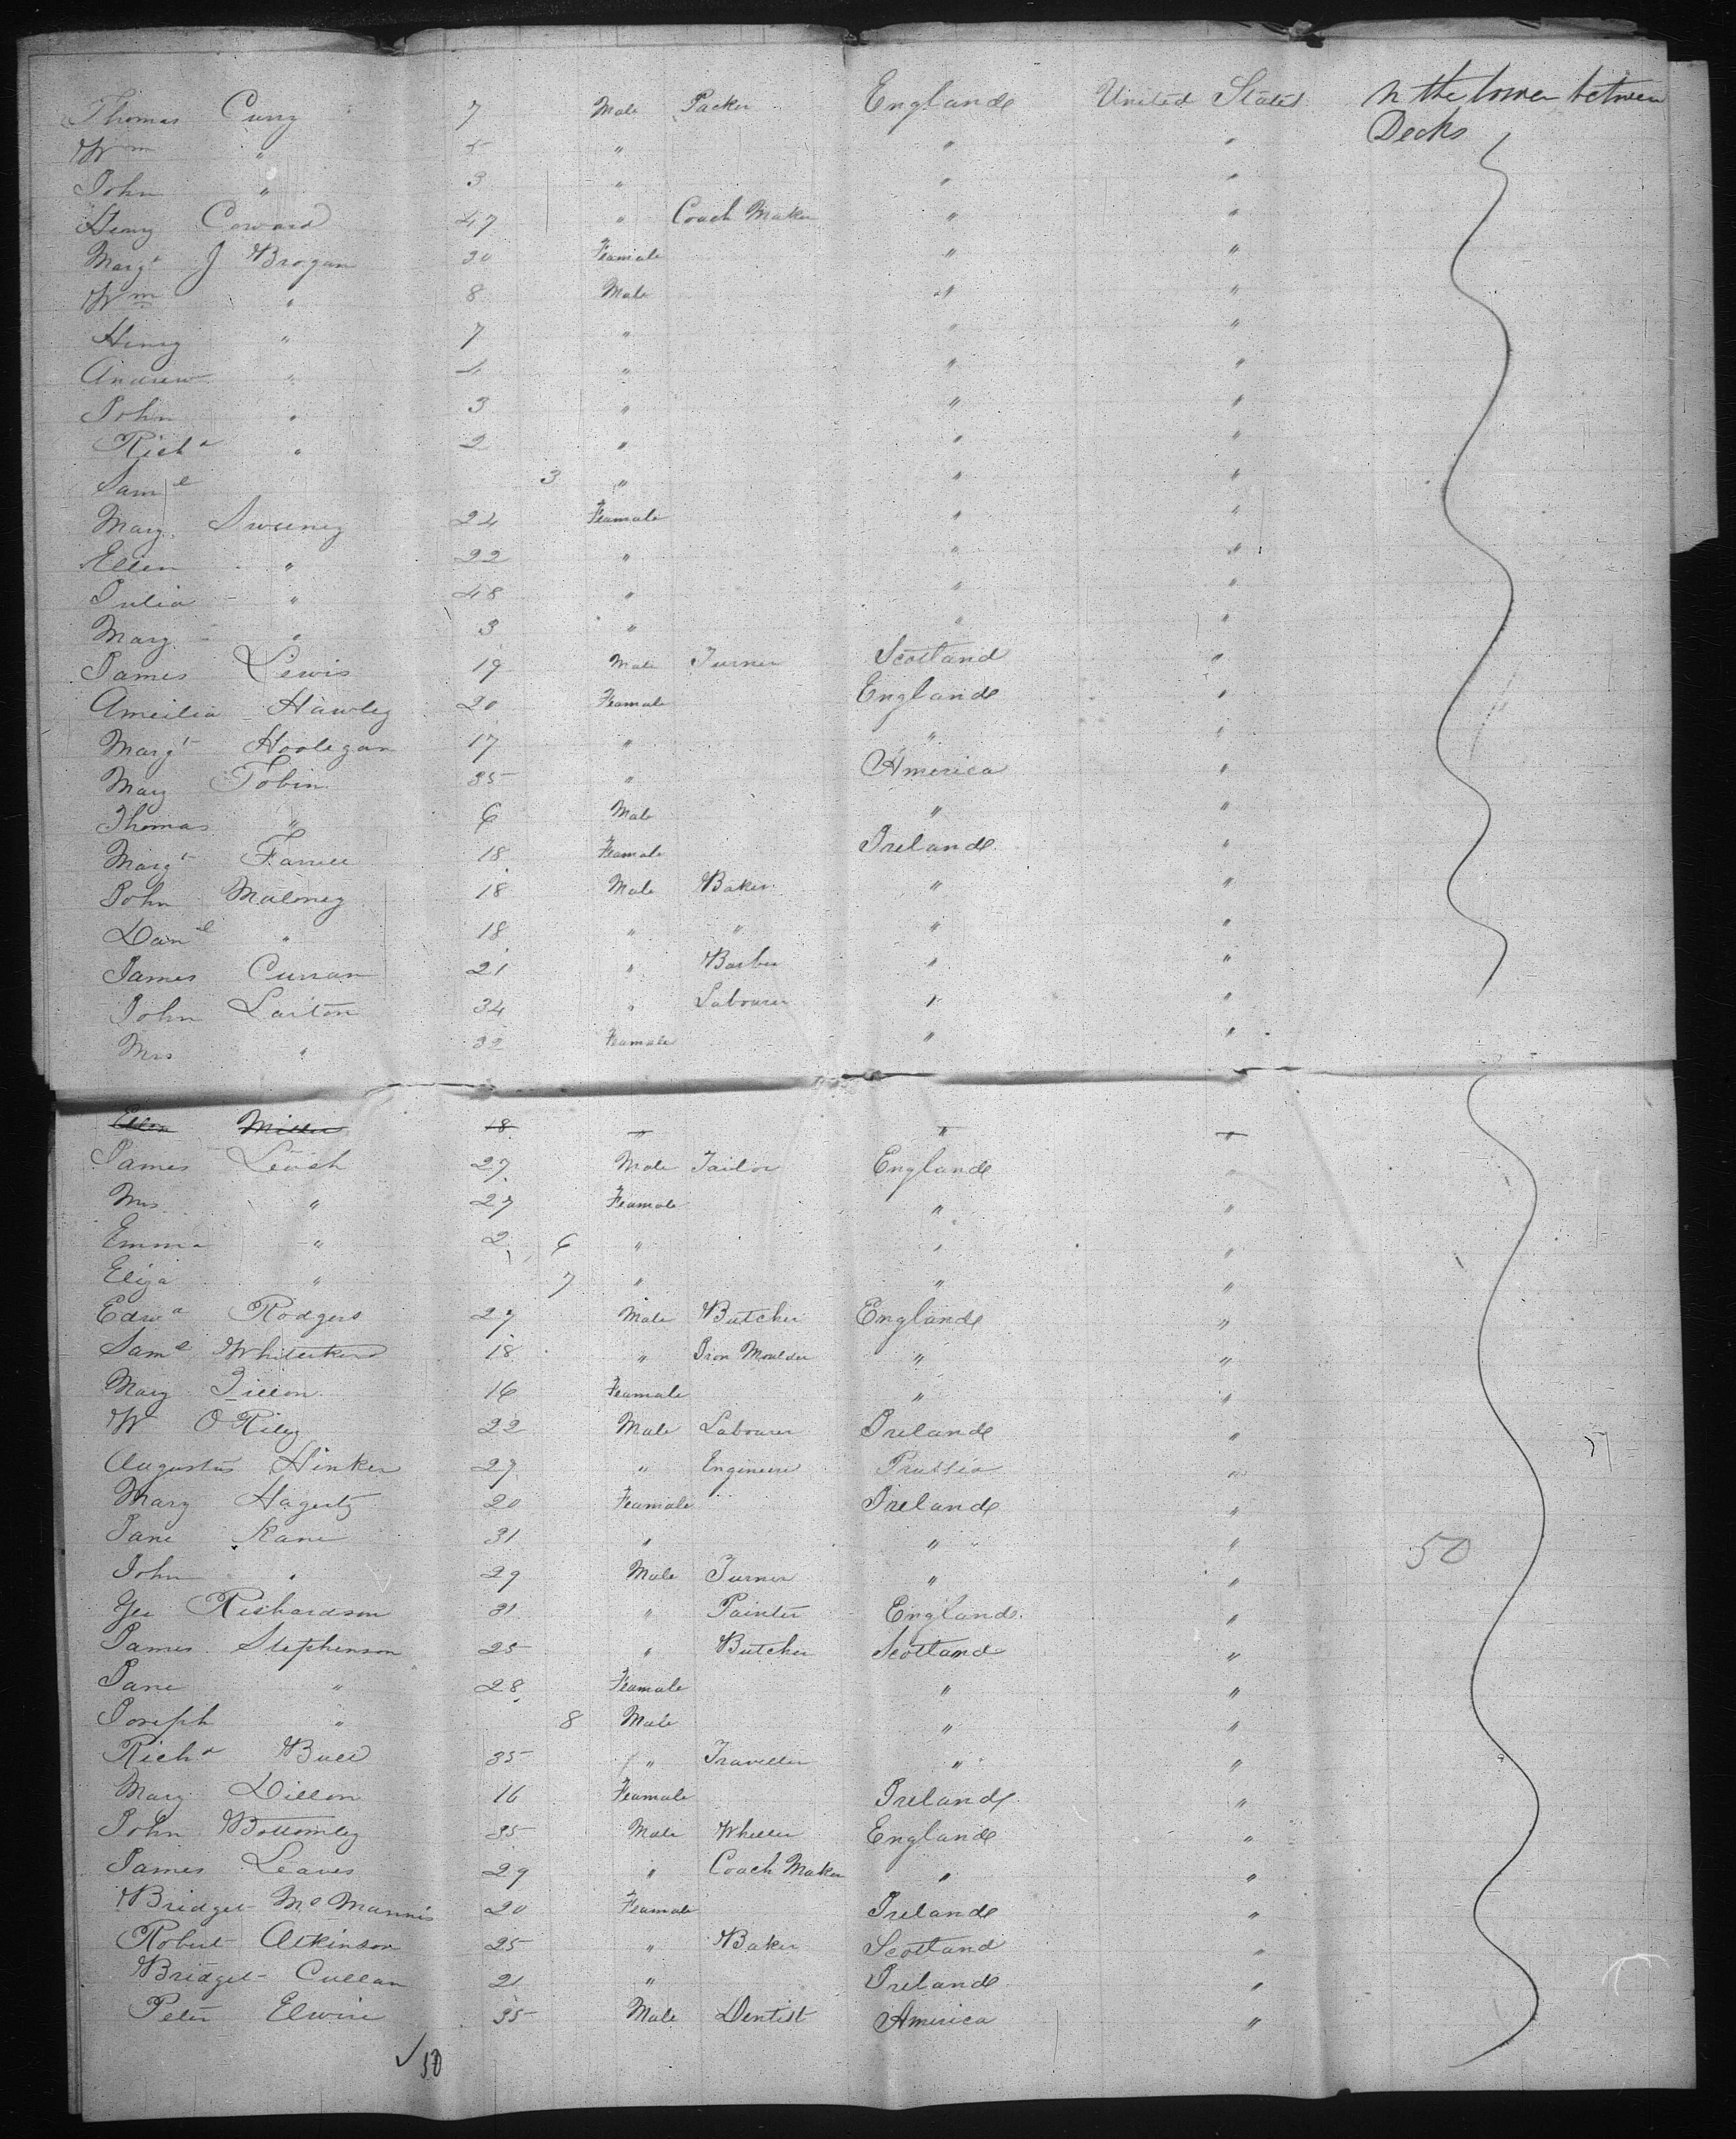 Thomas Curry 7 Male Packer England United States In the lower between
Decks
Wm " 5 " " "
John " 3 " " "
Henry Coward 47 " Coach Maker " "
Margt J Brogan 30 Feamale " "
Wm " 8 Male " "
Henry " 7 " " "
Andrew " 4 " " "
John " 3 " " "
Richd " 2 " " "
Saml 3 " " "
Mary Sweeney 24 Feamale " "
Ellen " 22 " " "
Julia " 48 " " "
Mary " 3 " " "
James Lewis 19 Male Turner Scotland "
Ameilia Hawley 20 Feamale England "
Margt Hooligan 17 " " "
Mary Tobin 35 " America "
Thomas " 6 Male " "
Margt 18 Feamale Ireland "
John Maloney 18 Male Baker " "
Danl " 18 " " " "
James Curran 21 " Barber " "
John Laiton 34 " Labourer " "
Mrs " 32 Feamale " "
Ellen Miller 18 " " "
James Leach 27 Male Tailor England "
Mrs " 27 Feamale " "
Emma " 2 6 " " "
Eliza " 7 " " "
Edwd Rodgers 27 Male Butcher England "
Saml 18 " Iron Moulder " "
Mary Dillon 16 Feamale " "
W O Riley 22 Male Labourer Ireland "
Augustus Hinker 27 " Engineer Prussia "
Mary Hagerty 20 Feamale Ireland "
Jane Kane 31 " " " 50
John " 29 Male Turner " "
Geo Richardson 31 " Painter England "
James Stephenson 25 " Butcher Scotland "
Jane " 28 Feamale " "
Joseph " 8 Male " "
Richd Bull 35 " Traveller " "
Mary Dillon 16 Feamale Ireland "
John Bottomley 35 Male Wheeler England "
James Leaves 29 " Coach Maker " "
Bridget Mc Mannis 20 Feamale Ireland "
Robert Atkinson 25 " Baker Scotland "
Bridget Cullan 21 " Ireland "
Peter Elwin 35 Male Dentist America "
50